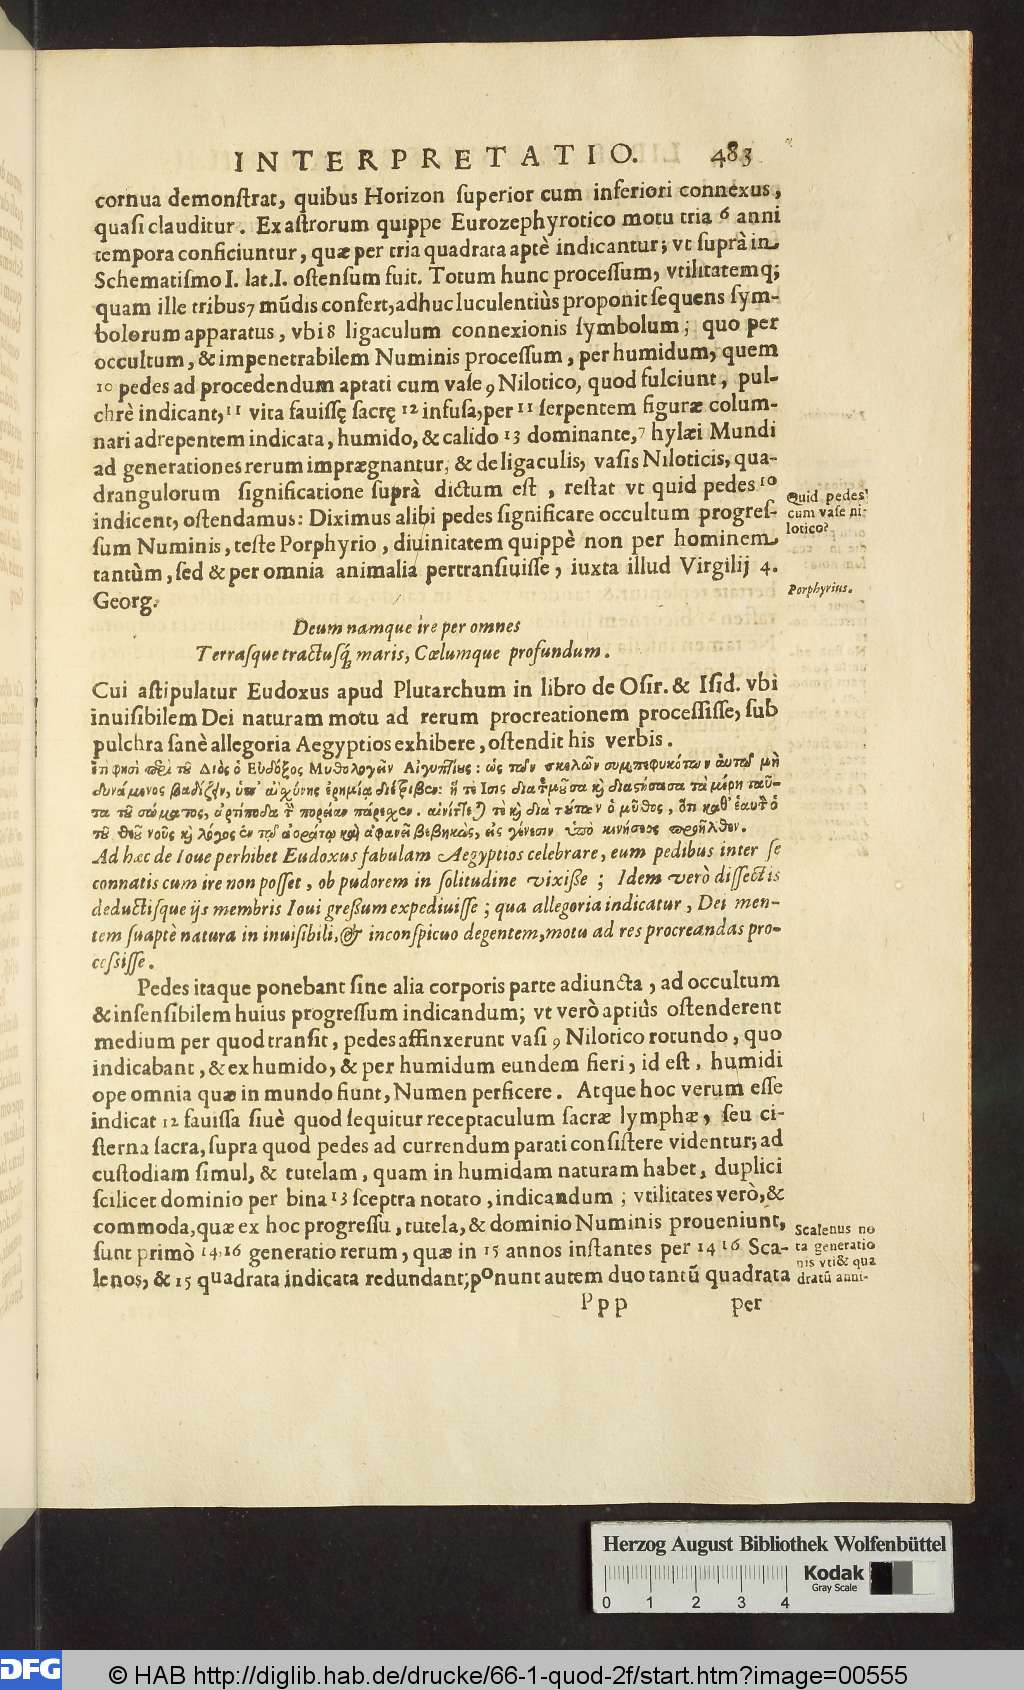 INTERPRETATIO. 483
cornua demonſtrat, quibus Horizon ſuperior cum inferiori connexus,
quaſi clauditur. Ex aſtrorum quippe Eurozephyrotico motu tria 6 anni
tempora conficiuntur, quæ per tria quadrata aptè indicantur; vt ſuprà in
Schematiſmo I. lat. I. oſtenſum fuit. Totum hunc proceſſum, vtilitatemq;
quam ille tribus 7 mũdis confert, adhuc luculentiùs proponit ſequens ſym-
bolorum apparatus, vbi 8 ligaculum connexionis ſymbolum; quo per
occultum, & impenetrabilem Numinis proceſſum, per humidum, quem
10 pedes ad procedendum aptati cum vaſe 9 Nilotico, quod fulciunt, pul-
chrè indicant, 11 vita fauiſſę ſacrę 12 infuſa, per 11 ſerpentem figuræ colum-
nari adrepentem indicata, humido, & calido 13 dominante, 7 hylæi Mundi
ad generationes rerum imprægnantur; & de ligaculis, vaſis Niloticis, qua-
drangulorum ſignificatione ſuprà dictum eſt, reſtat vt quid pedes 10
indicent, oſtendamus: Diximus alibi pedes ſignificare occultum progreſ-
ſum Numinis, teſte Porphyrio, diuinitatem quippè non per hominem
tantùm, ſed & per omnia animalia pertranſiuiſſe, iuxta illud Virgilij 4.
Georg.
Quid pedes
cum vaſe ni-
lotico?
Porphyrius.
Deum namque ire per omnes
Terraſque tractuſq; maris, Cœlumque profundum.
Cui aſtipulatur Eudoxus apud Plutarchum in libro de Oſir. & Iſid. vbi
inuiſibilem Dei naturam motu ad rerum procreationem proceſſiſſe, ſub
pulchra ſanè allegoria Aegyptios exhibere, oſtendit his verbis.
φησὶ περὶ τοῦ Διὸς ὁ Εὔδοξος Μυθολογεῖν Αἰγυπτίους: ὡς τῶν σκελῶν συμπεφυκότων αὐτῷ μὴ
δυνάμενος βαδίζειν, ὑπ' αἰχύνης ἐρημίᾳ διέτριβεν: ἡ τε Ισις διατεμοῦσα καὶ διαστήσασα τὰ μέρη ταῦ-
τα τοῦ σώματος, ἀρτίποδα τὴν πορείαν πάρεχεν. αἰνίττεται τε καὶ διὰ τούτων ὁ μῦθος, ὅτι καθ' ἑαυτὸ ὁ
τοῦ θεοῦ νοῦς καὶ λόγος ἐν τῷ ἀοράτῳ καὶ ἀφανεῖ βεβηκὼς, εἰς γένεσιν ὑπὸ κινήσεως προῆλθεν.
Ad hæc de Ioue perhibet Eudoxus fabulam Aegyptios celebrare, eum pedibus inter ſe
connatis cum ire non poſſet, ob pudorem in ſolitudine vixiſſe; Idem verò diſſectis
deductiſque ijs membris Ioui greſſum expediuiſſe; qua allegoria indicatur, Dei men-
tem ſuaptè natura in inuiſibili, & inconſpicuo degentem, motu ad res procreandas pro-
ceſſiſſe.
Pedes itaque ponebant ſine alia corporis parte adiuncta, ad occultum
& inſenſibilem huius progreſſum indicandum; vt verò aptiùs oſtenderent
medium per quod tranſit, pedes affinxerunt vaſi 9 Nilotico rotundo, quo
indicabant, & ex humido, & per humidum eundem fieri, id eſt, humidi
ope omnia quæ in mundo fiunt, Numen perficere. Atque hoc verum eſſe
indicat 12 fauiſſa ſiuè quod ſequitur receptaculum ſacræ lymphæ, ſeu ci-
ſterna ſacra, ſupra quod pedes ad currendum parati conſiſtere videntur; ad
cuſtodiam ſimul, & tutelam, quam in humidam naturam habet, duplici
ſcilicet dominio per bina 13 ſceptra notato, indicandum; vtilitates verò, &
commoda, quæ ex hoc progreſſu, tutela, & dominio Numinis proueniunt,
ſunt primò 14, 16 generatio rerum, quæ in 15 annos inſtantes per 14 16 Sca-
lenos, & 15 quadrata indicata redundant; ponunt autem duo tantũ quadrata
Scalenus no
ta generatio
nis vti & qua
dratũ anni-
Ppp per
Herzog August Bibliothek Wolfenbüttel
Kodak
Gray Scale
0 1 2 3 4
DFG
© HAB http://diglib.hab.de/drucke/66-1-quod-2f/start.htm?image=00555